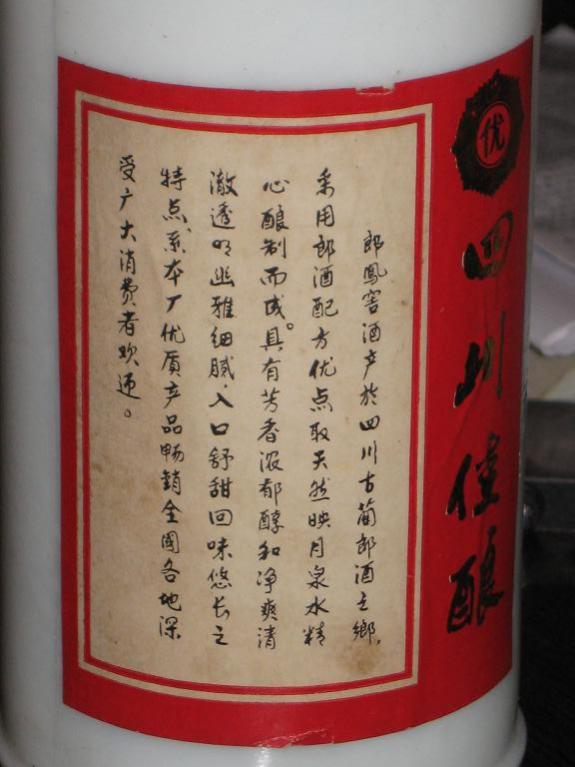 优
四川佳酿
郎鳳窖酒产於四川古蔺郎酒之鄉,
采用郎酒配方优点取天然映月泉水精
心酿制而成。具有芳香浓郁醇和净爽清
澈透明幽雅细腻,入口舒甜回味悠长之
特点,系本厂优质产品畅銷全國各地深
受广大消费者欢迎。